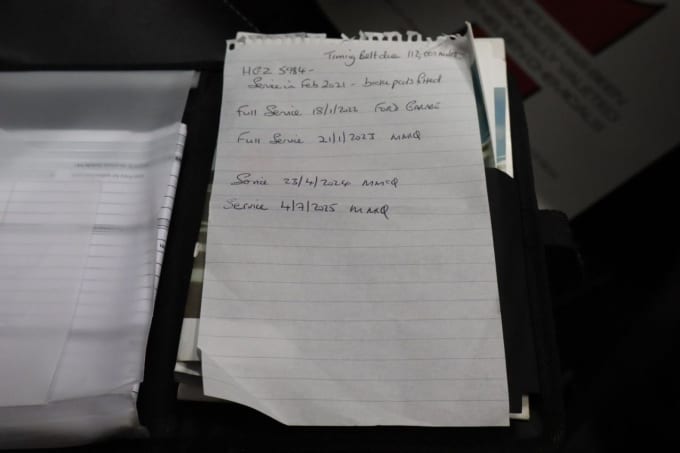 Timing Belt due 112,000 miles
HGZ 5984 -
Service in Feb 2021 - brake pads fitted
Full Service 18/1/2022 FORD GARAGE
Full Service 21/1/2023 MMQ
Service 23/4/2024 MMCQ
Service 4/7/2025 MMQ